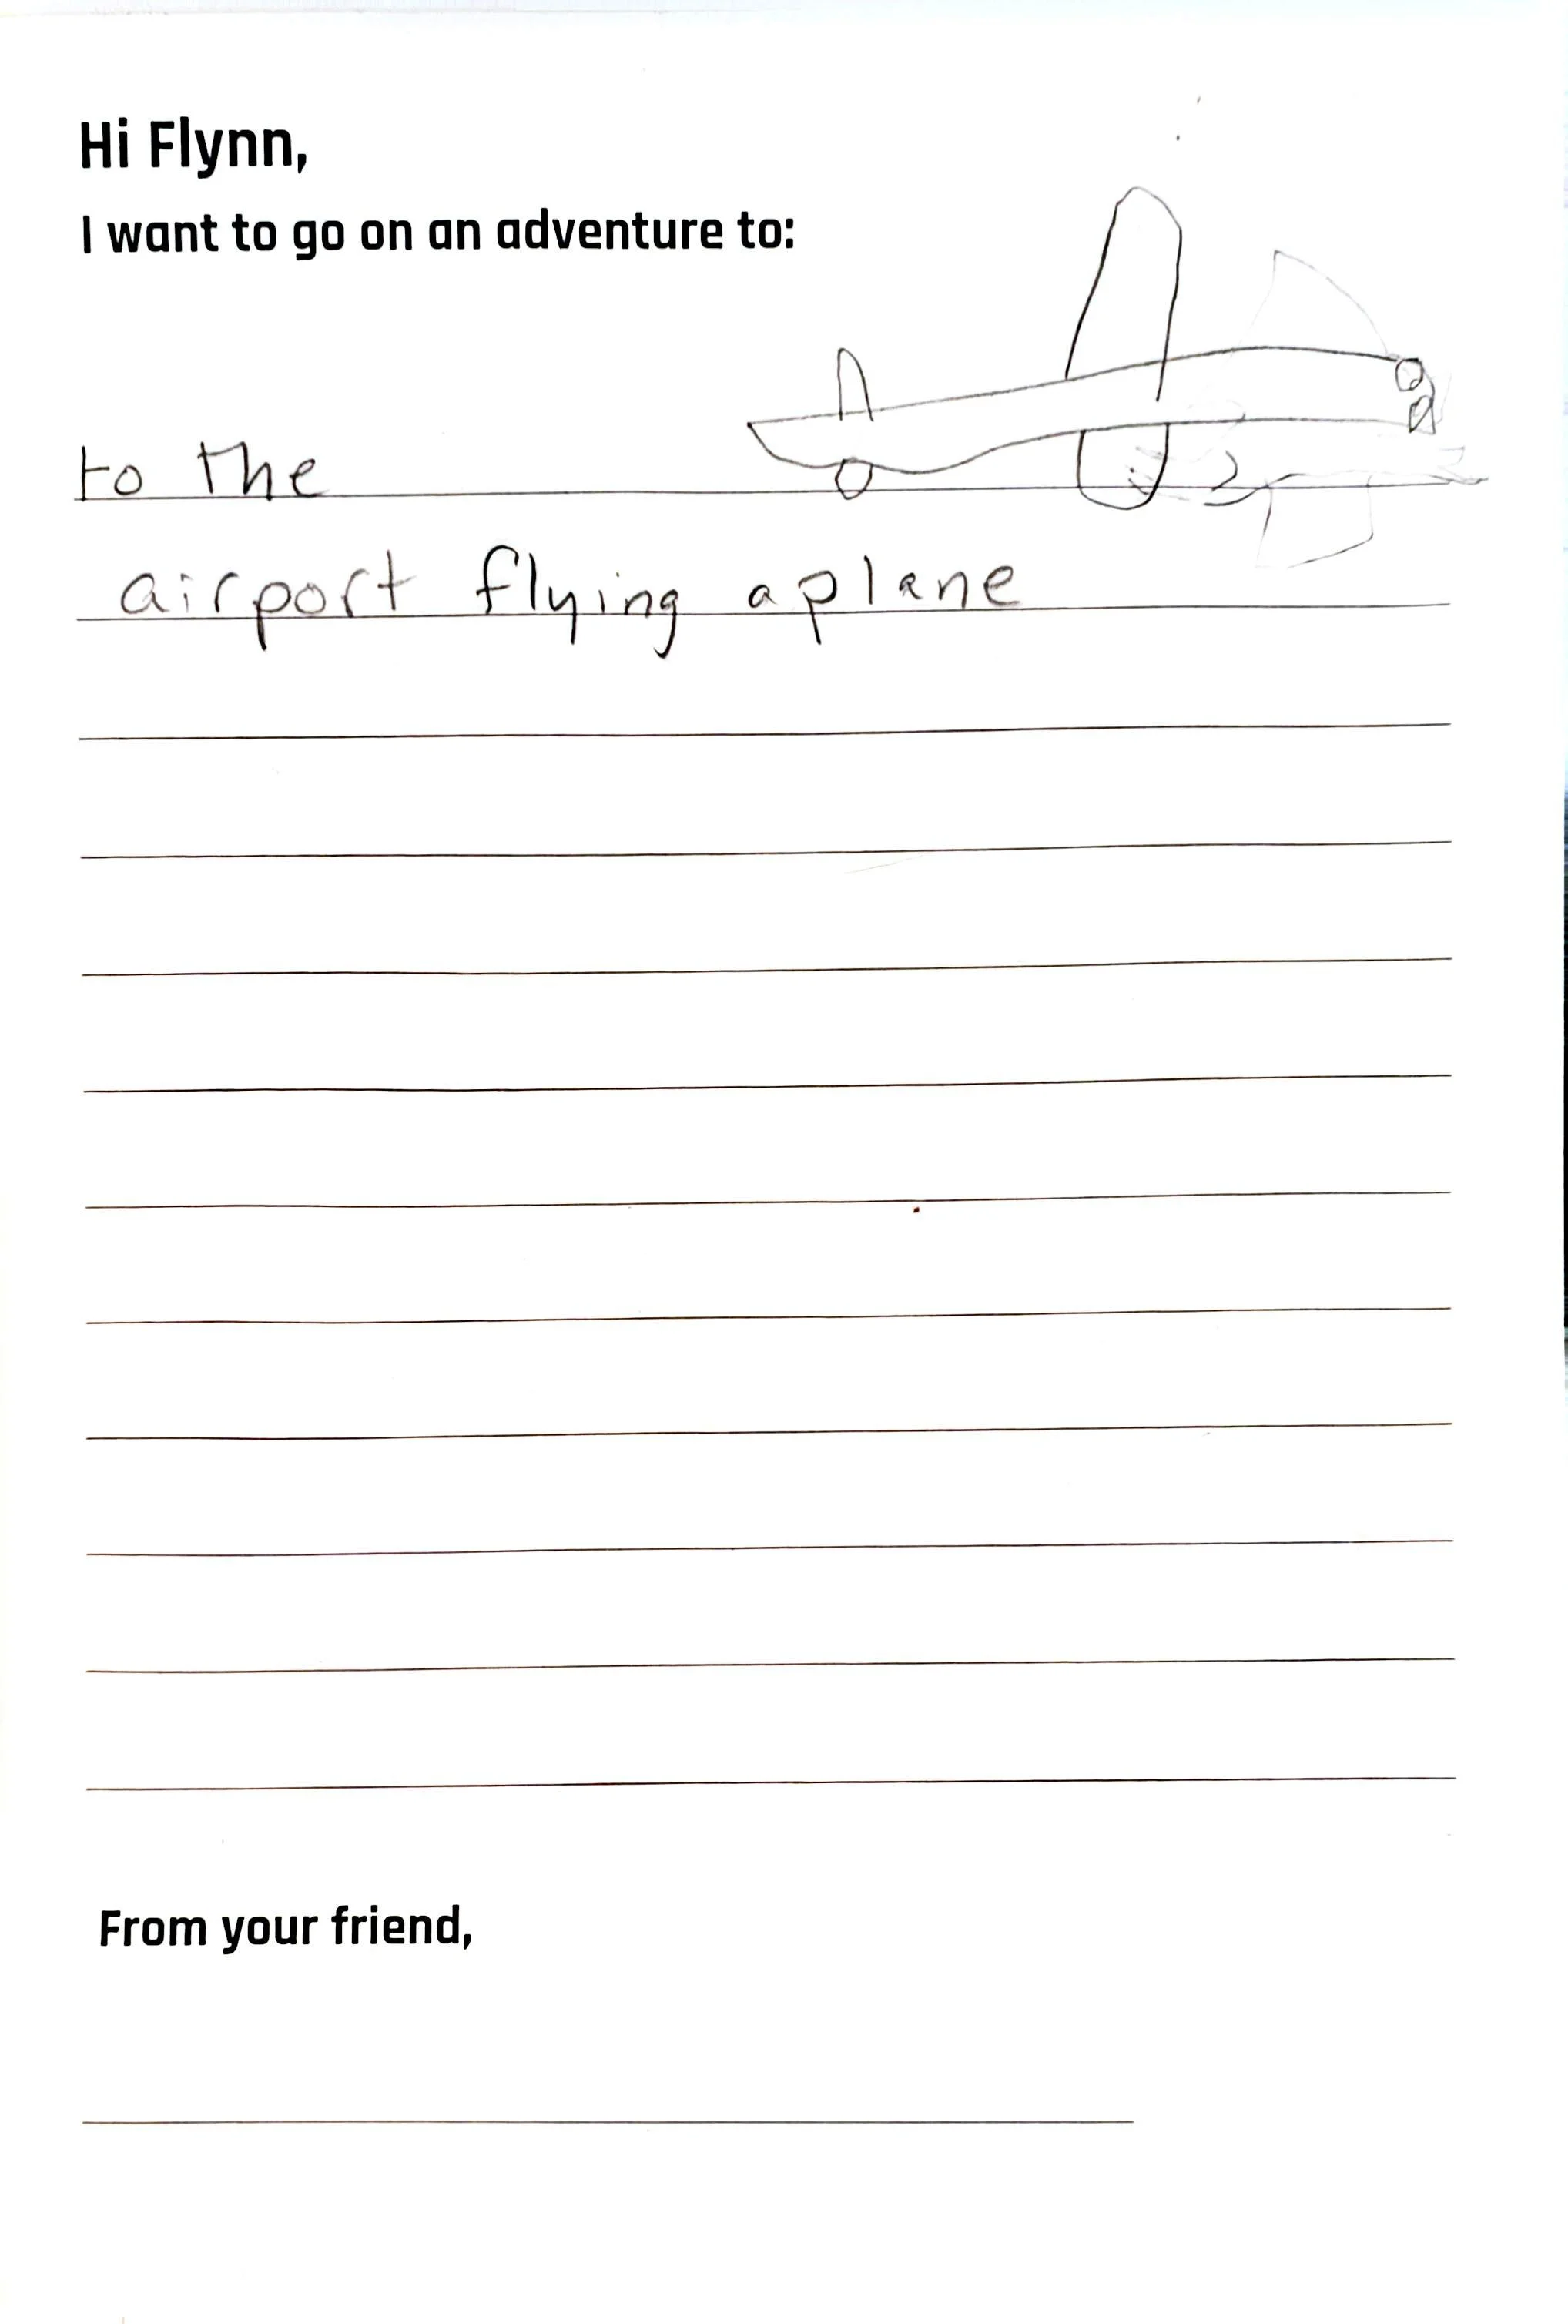 Hi Flynn,
I want to go on an adventure to:
to the
airport flying a plane
From your friend,